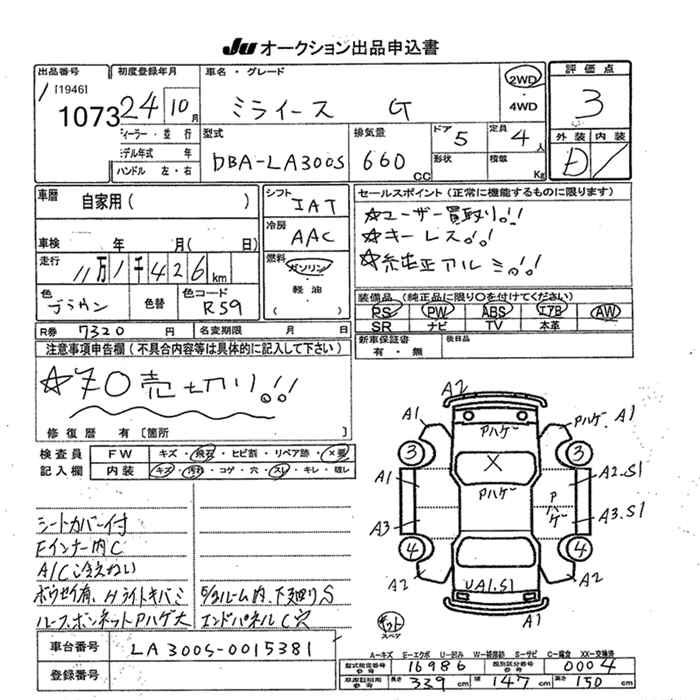 JU オークション出品申込書
出品番号
[1946]
1073
初度登録年月
24 10月
ディーラー・並行
モデル年式 年
ハンドル 左・右
車名・グレード
ミライース G
2WD
・4WD
評価点
3
外装 内装
D
型式
DBA-LA300S
排気量
660 CC
ドア 5
形状
定員 4人
積載 Kg
車歴
自家用( )
車検 年 月( 日)
走行
11万1千426km
色
ブラウン
色替
色コード
R59
シフト
IAT
冷房
AAC
燃料
ガソリン
・
軽油
( )
セールスポイント(正常に機能するものに限ります)
☆ユーザー買取り!!
☆キーレス!!
☆純正アルミ!!
装備品(純正品に限り○を付けてください)
PS PW ABS エアB AW
SR ナビ TV 本革
新車保証書
有・無
後日品
R券 7320円
名変期限 月 日
注意事項申告欄(不具合内容等は具体的に記入して下さい)
☆ノО売切り!!
修復歴 有[箇所 ]
検査員
記入欄
FW キズ・飛石・ヒビ割・リペア跡・X要
内装 キズ・汚れ・コゲ・穴・スレ・キレ・破レ
シートカバー付
Fインナー内C
A/C冷えない
ボウセイ有、Hライトキバミ
ルーフ、ボンネットPハゲ大
E/gルーム内、下廻りS
エンドパネルC穴
A2
A1
Pハゲ
Pハゲ A1
3
3
X
A1
Pハゲ
P
ハゲ
A2.S1
A3
A3.S1
4
4
A2
UA1.S1
A2
A1
スペア
車台番号
LA300S-0015381
登録番号
A-キズ E-エクボ U-凹み W-補修跡 S-サビ C-腐食 XX-交換済
型式指定番号
参考
16986
類別区分番号
参考
0004
車庫証明用
参考
長さ 339cm
幅 147cm
高さ 150cm